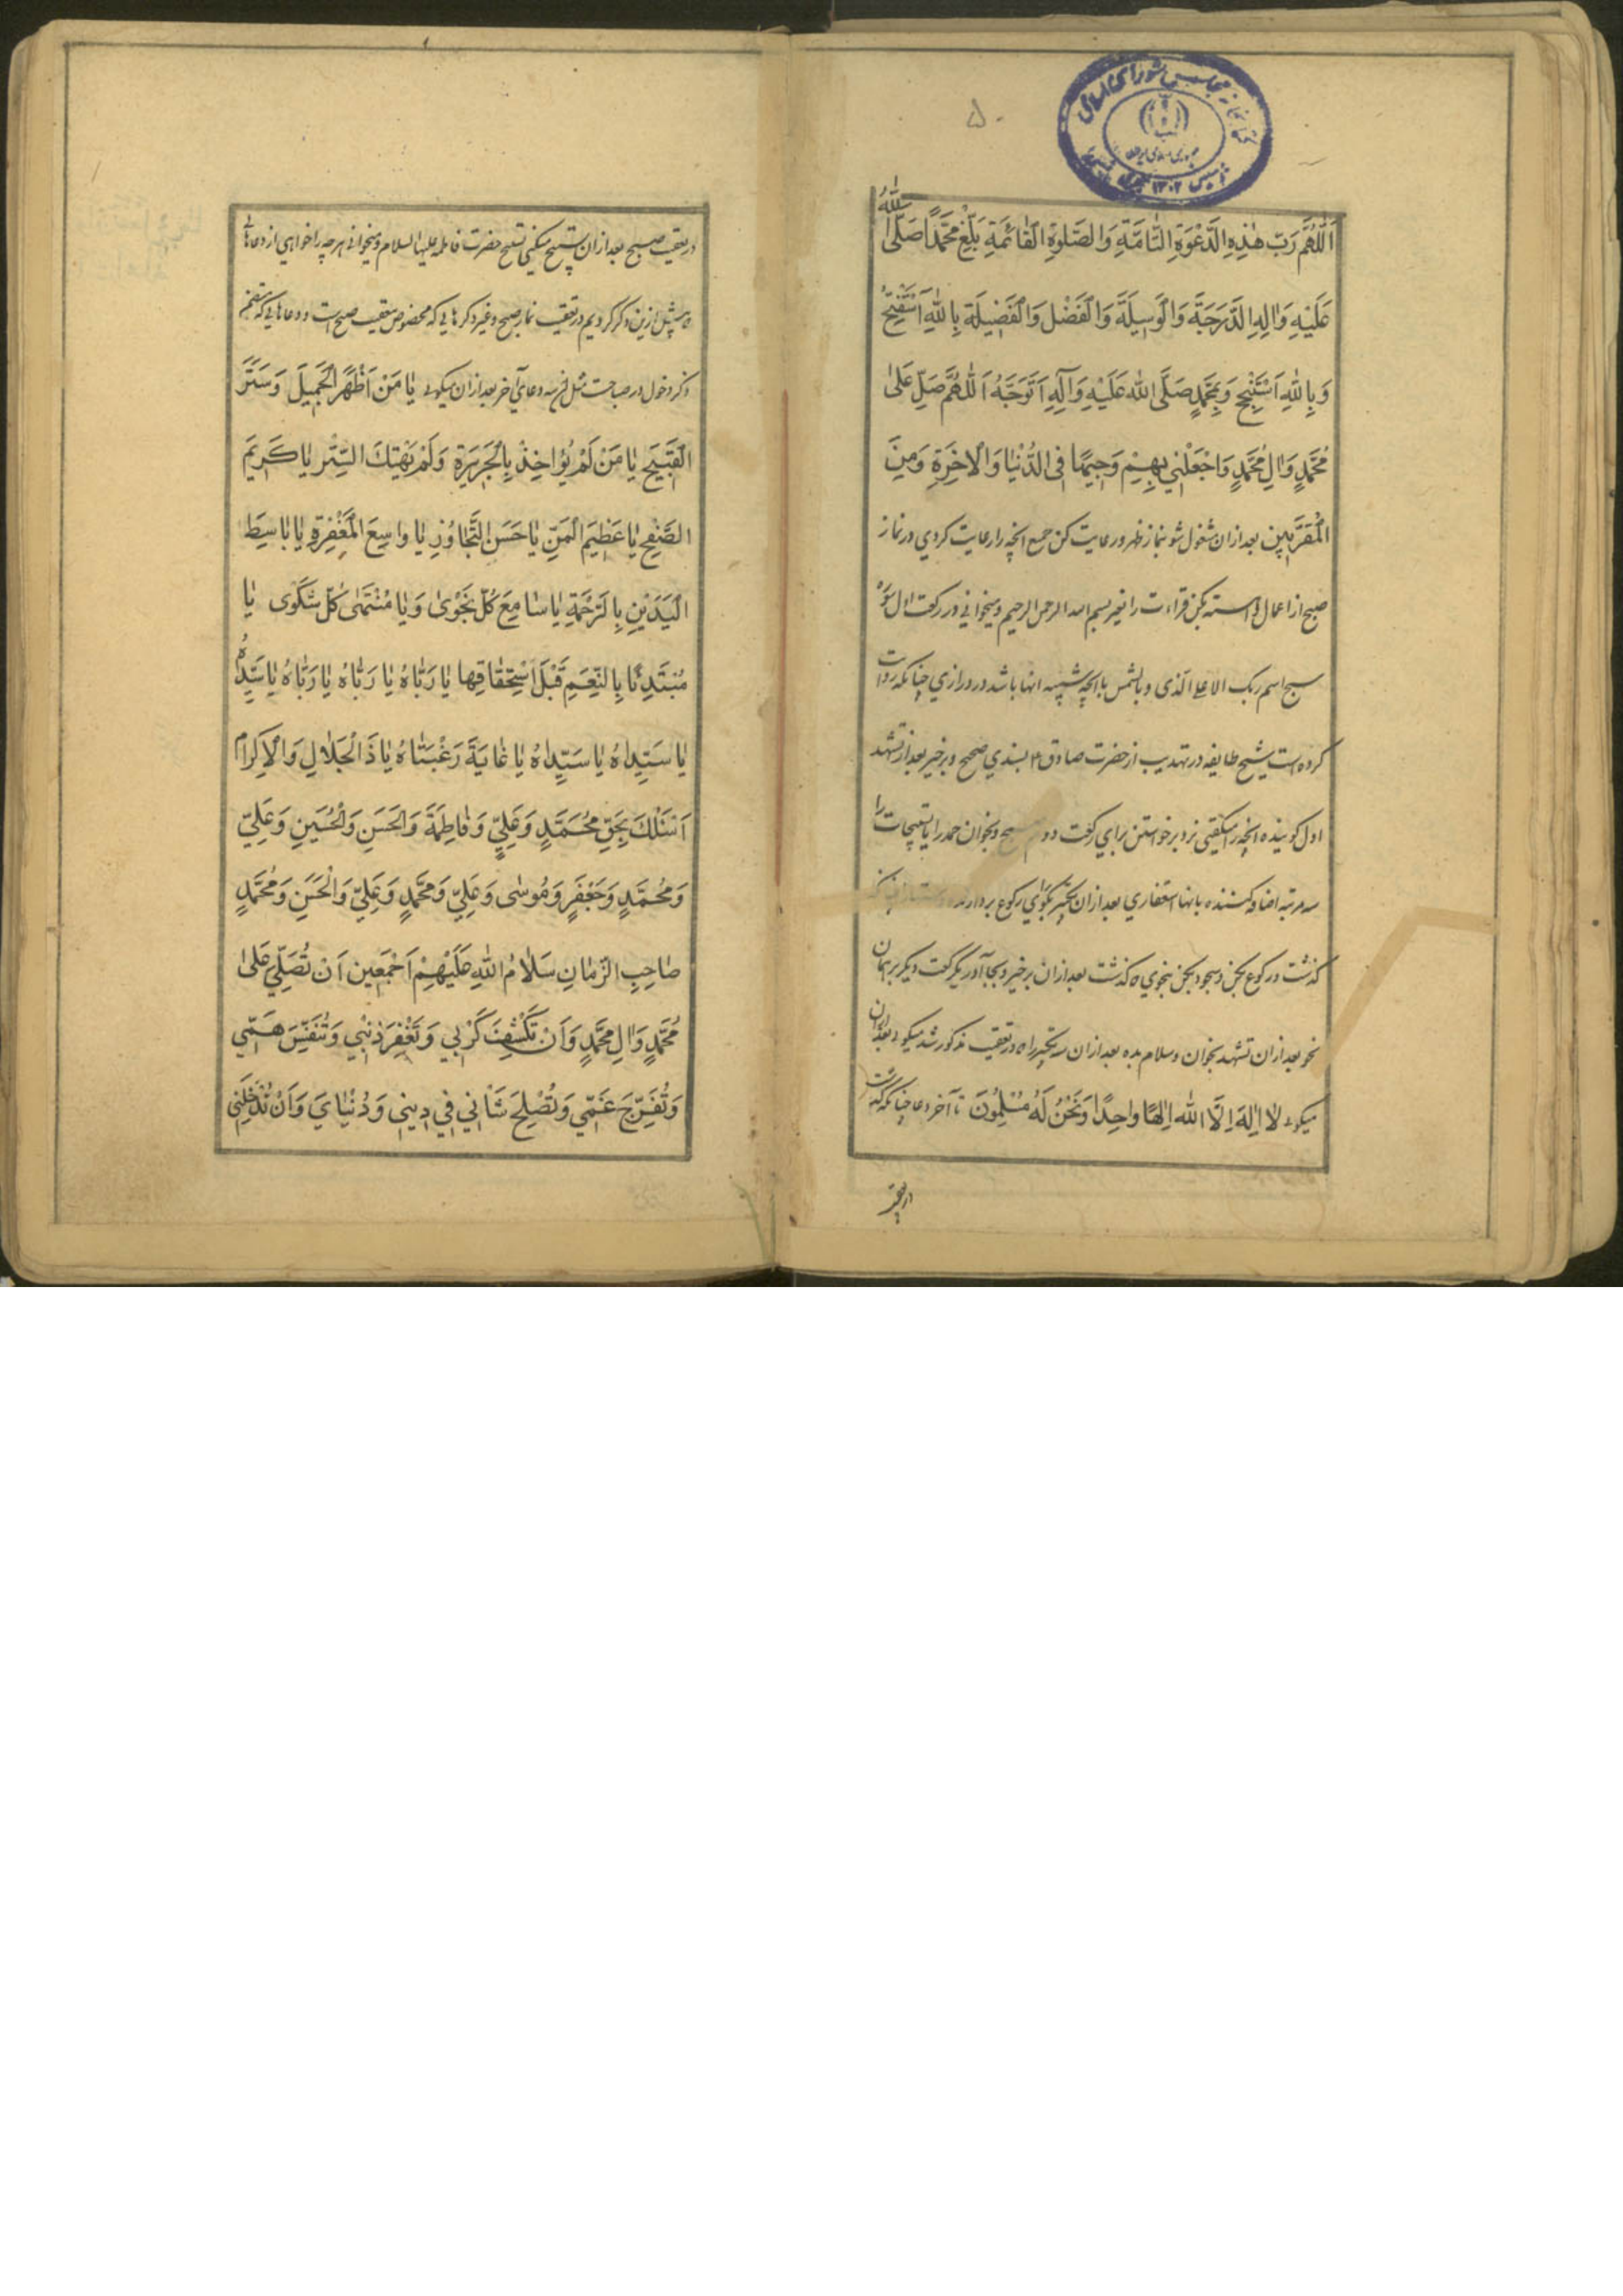 ۵۰
کتابخانه مجلس شورای اسلامی
جمهوری اسلامی ایران
تأسیس ۱۳۰۲
اَللّٰهُمَّ رَبَّ هٰذِهِ الدَّعْوَةِ التَّامَّةِ وَالصَّلٰوةِ الْقٰائِمَةِ بَلِّغْ مُحَمَّدًا صَلَّى اللّٰهُ
عَلَيْهِ وَاٰلِهِ الدَّرَجَةَ وَالْوَسِيلَةَ وَالْفَضْلَ وَالْفَضِيلَةَ بِاللّٰهِ اَسْتَفْتِحُ
وَبِاللّٰهِ اَسْتَنْجِحُ وَبِمُحَمَّدٍ صَلَّى اللّٰهُ عَلَيْهِ وَآلِهِ اَتَوَجَّهُ اَللّٰهُمَّ صَلِّ عَلىٰ
مُحَمَّدٍ وَاٰلِ مُحَمَّدٍ وَاجْعَلْنِي بِهِمْ وَجِيهًا فِى الدُّنْيٰا وَالْاٰخِرَةِ وَمِنَ
الْمُقَرَّبِينَ بعد ازان مشغول شو بنماز ظهر و رعایت کن جمیع انچه را رعایت کردی در نماز
صبح از اعمال و اهسته بکن قراءت را بغیر بسم الله الرحمن الرحیم و میخوانی در رکعت اول سوره
سبح اسم ربک الاعلی الذی و یا الشمس یا انچه شبیه انها باشد در درازی چنانکه روایت
کرده است شیخ طایفه در تهذیب از حضرت صادق ۴ بسندی صحیح و برخیز بعد از تشهد
اول کوینده انچه را میکفتی نزد برخواستن برای رکعت دوم و بخوان حمد را یا تسبیحات را
سه مرتبه اضافه کننده بانها استغفاری بعد ازان تکبیر بکوی برای رکوع
کذشت در رکوع بکن و سجود بکن بنحوی که کذشت بعد ازان برخیز و بجا آور یک رکعت دیکر بر همان
نحو بعد ازان تشهد بخوان و سلام بده بعد ازان سه تکبیر را که در تعقیب مذکور شد میکوی و بعد ازان
میکوی لٰا اِلٰهَ اِلَّا اللّٰه اِلٰهًا وٰاحِدًا وَنَحْنُ لَهُ مُسْلِمُونَ تا آخر دعا چنانکه کذشت
در تعقیب
در تعقیب صبح بعد ازان تسبیح میکنی تسبیح حضرت فاطمه علیها السلام و میخوانی هر چه را خواهی از دعاهای
که پیش ازین ذکر کردیم در تعقیب نماز صبح و غیر ذکرهایی که مخصوص تعقیب صبح است و دعاهایی که متضمن
ذکر دخول در صباحت مثل دعای آخر بعد ازان میکوی يٰا مَنْ اَظْهَرَ الْجَمِيلَ وَسَتَرَ
الْقَبِيحَ يٰا مَنْ لَمْ يُؤٰاخِذْ بِالْجَرِيرَةِ وَلَمْ يَهْتِكَ السِّتْرَ يٰا كَرِيمَ
الصَّفْحِ يٰا عَظِيمَ الْمَنِّ يٰا حَسَنَ التَّجٰاوُزِ يٰا وٰاسِعَ الْمَغْفِرَةِ يٰا بٰاسِطَ
الْيَدَيْنِ بِالرَّحْمَةِ يٰا سٰامِعَ كُلِّ نَجْوىٰ وَيٰا مُنْتَهىٰ كُلِّ شَكْوٰى يٰا
مُبْتَدِئًا بِالنِّعَمِ قَبْلَ اسْتِحْقٰاقِهٰا يٰا رَبّٰاهُ يٰا رَبّٰاهُ يٰا رَبّٰاهُ يٰا سَيِّدٰاهُ
يٰا سَيِّدٰاهُ يٰا سَيِّدٰاهُ يٰا غٰايَةَ رَغْبَتٰاهُ يٰا ذَا الْجَلٰالِ وَالْاِكْرٰامِ
اَسْئَلُكَ بِحَقِّ مُحَمَّدٍ وَعَلِيٍّ وَفٰاطِمَةَ وَالْحَسَنِ وَالْحُسَيْنِ وَعَلِيٍّ
وَمُحَمَّدٍ وَجَعْفَرٍ وَمُوسٰى وَعَلِيٍّ وَمُحَمَّدٍ وَعَلِيٍّ وَالْحَسَنِ وَمُحَمَّدٍ
صٰاحِبِ الزَّمٰانِ سَلٰامُ اللّٰهِ عَلَيْهِمْ اَجْمَعِينَ اَنْ تُصَلِّيَ عَلىٰ
مُحَمَّدٍ وَاٰلِ مُحَمَّدٍ وَاَنْ تَكْشِفَ كَرْبِي وَتَغْفِرَ ذَنْبِي وَتُنَفِّسَ هَمِّي
وَتُفَرِّجَ غَمِّي وَتُصْلِحَ شَأْنِي فِي دِينِي وَدُنْيٰايَ وَاَنْ تُدْخِلَنِي